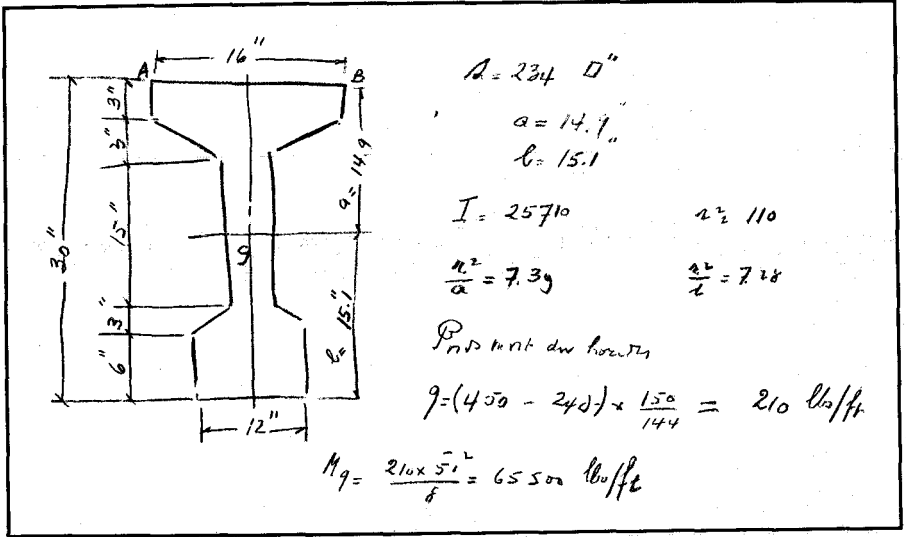 16"
A B
3"
3"
15"
3"
6"
30"
a = 14.9
b = 15.1"
g
12"
A = 234 □"
a = 14.9"
b = 15.1"
I = 25710 r² = 110
r²/a = 7.39 r²/b = 7.28
du
g = (450 - 240) × 150/144 = 210 lbs/ft
Mg = 210 × 50²/8 = 65500 lbs/ft